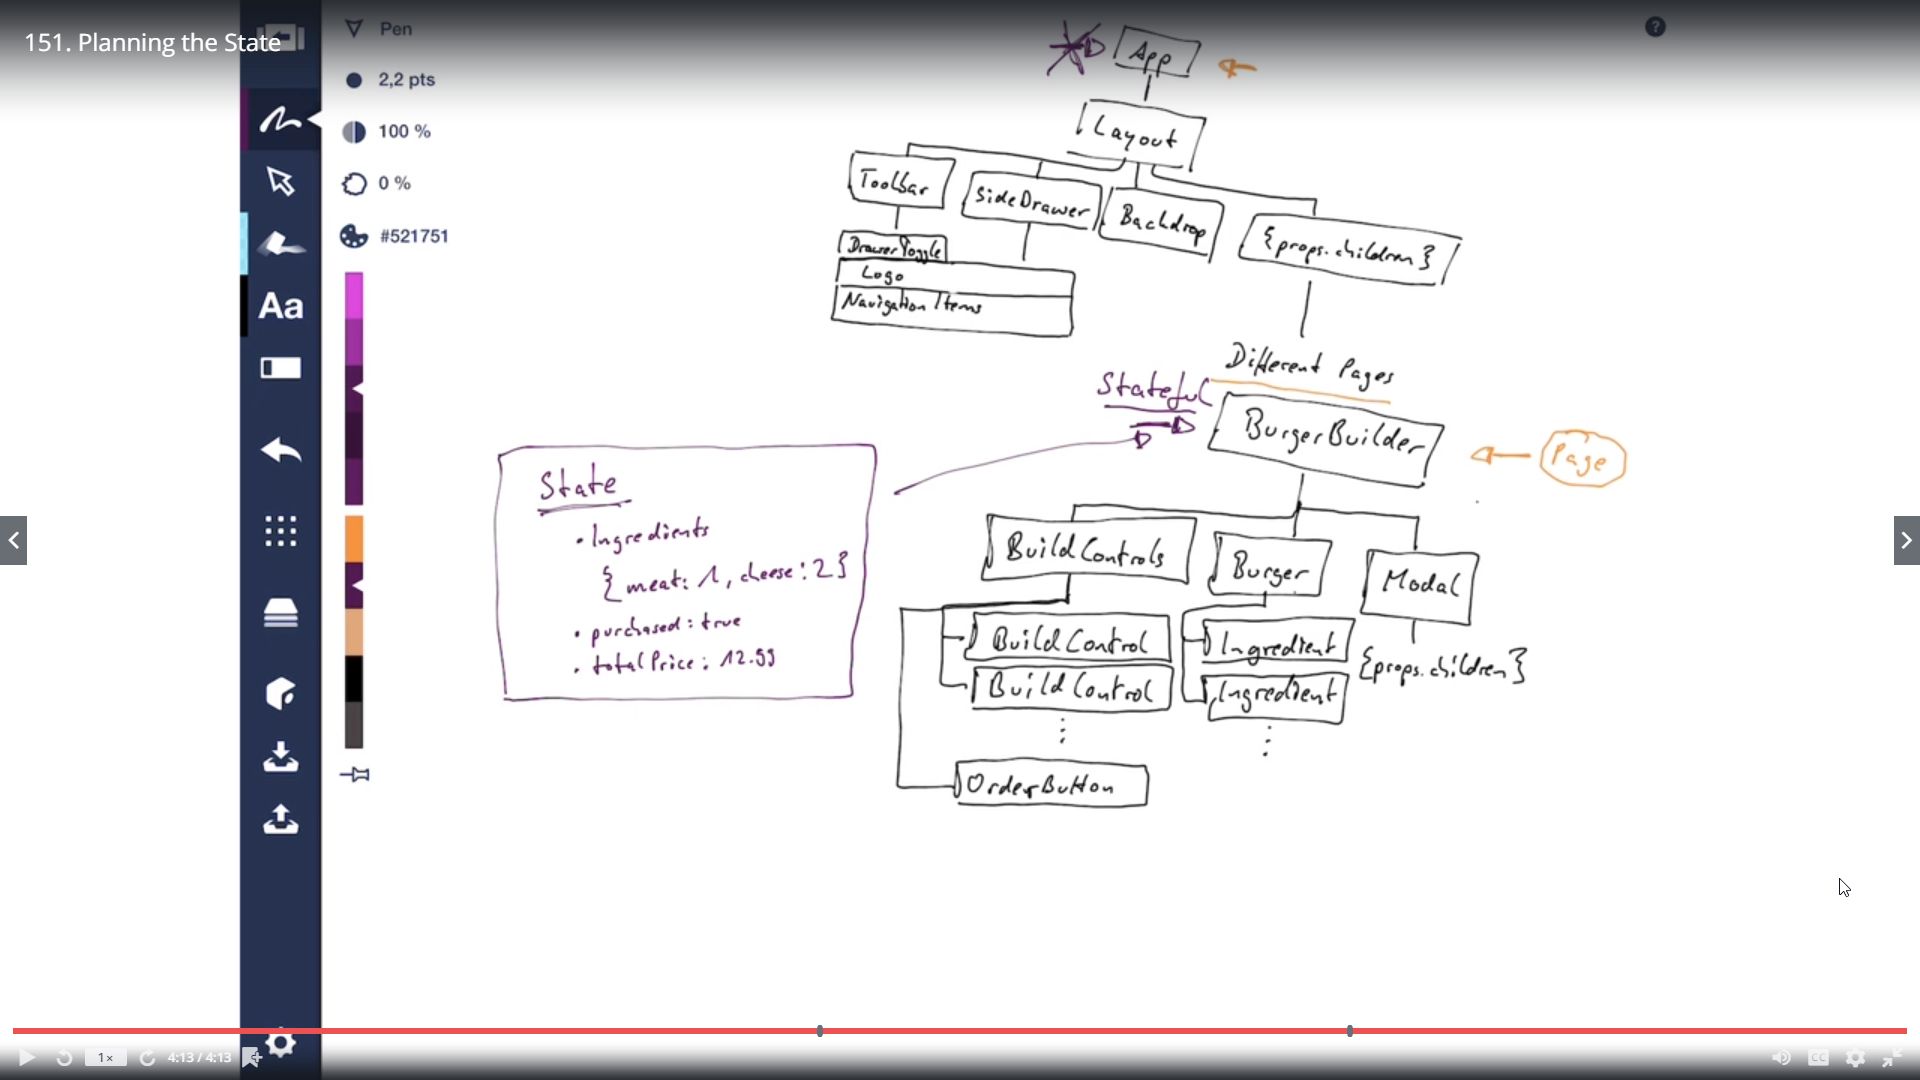 151. Planning the State
Pen
2,2 pts
100 %
0 %
#521751
Aa
?
App
Layout
Toolbar
SideDrawer
Backdrop
{props.children}
DrawerToggle
Logo
Navigation Items
Different Pages
Stateful
BurgerBuilder
Page
State
• Ingredients
{meat: 1, cheese: 2}
• purchased: true
• totalPrice: 12.99
BuildControls
Burger
Modal
BuildControl
Ingredient
{props.children}
BuildControl
Ingredient
OrderButton
1×
4:13 / 4:13
CC